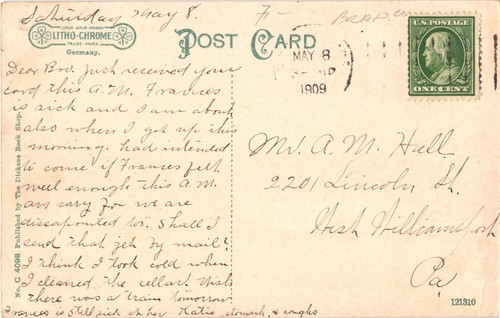 Saturday May 8.
7-
BRAD. CO
LEIPZIG BERLIN DRESDEN
LITHO-CHROME
TRADE MARK
Germany.
POST CARD
MAY 8
1909
U.S. POSTAGE
ONE CENT
Dear Bro. Just received your
card this A.M. Frances
is sick and I am about
also when I got up this
morning. had intended
to come if Frances felt
well enough this A.M.
am sorry for we are
dissapointed too. Shall I
send that by mail?
I think I took cold when
I cleaned the cellar. Wish
there was a train tomorrow
Frances is still sick at her stomach, & coughs
Mr. A. M. Hall
2201 Lincoln St.
West Williamsport
Pa
No. C 4098 Published by The Dickens Book Shop.
121310